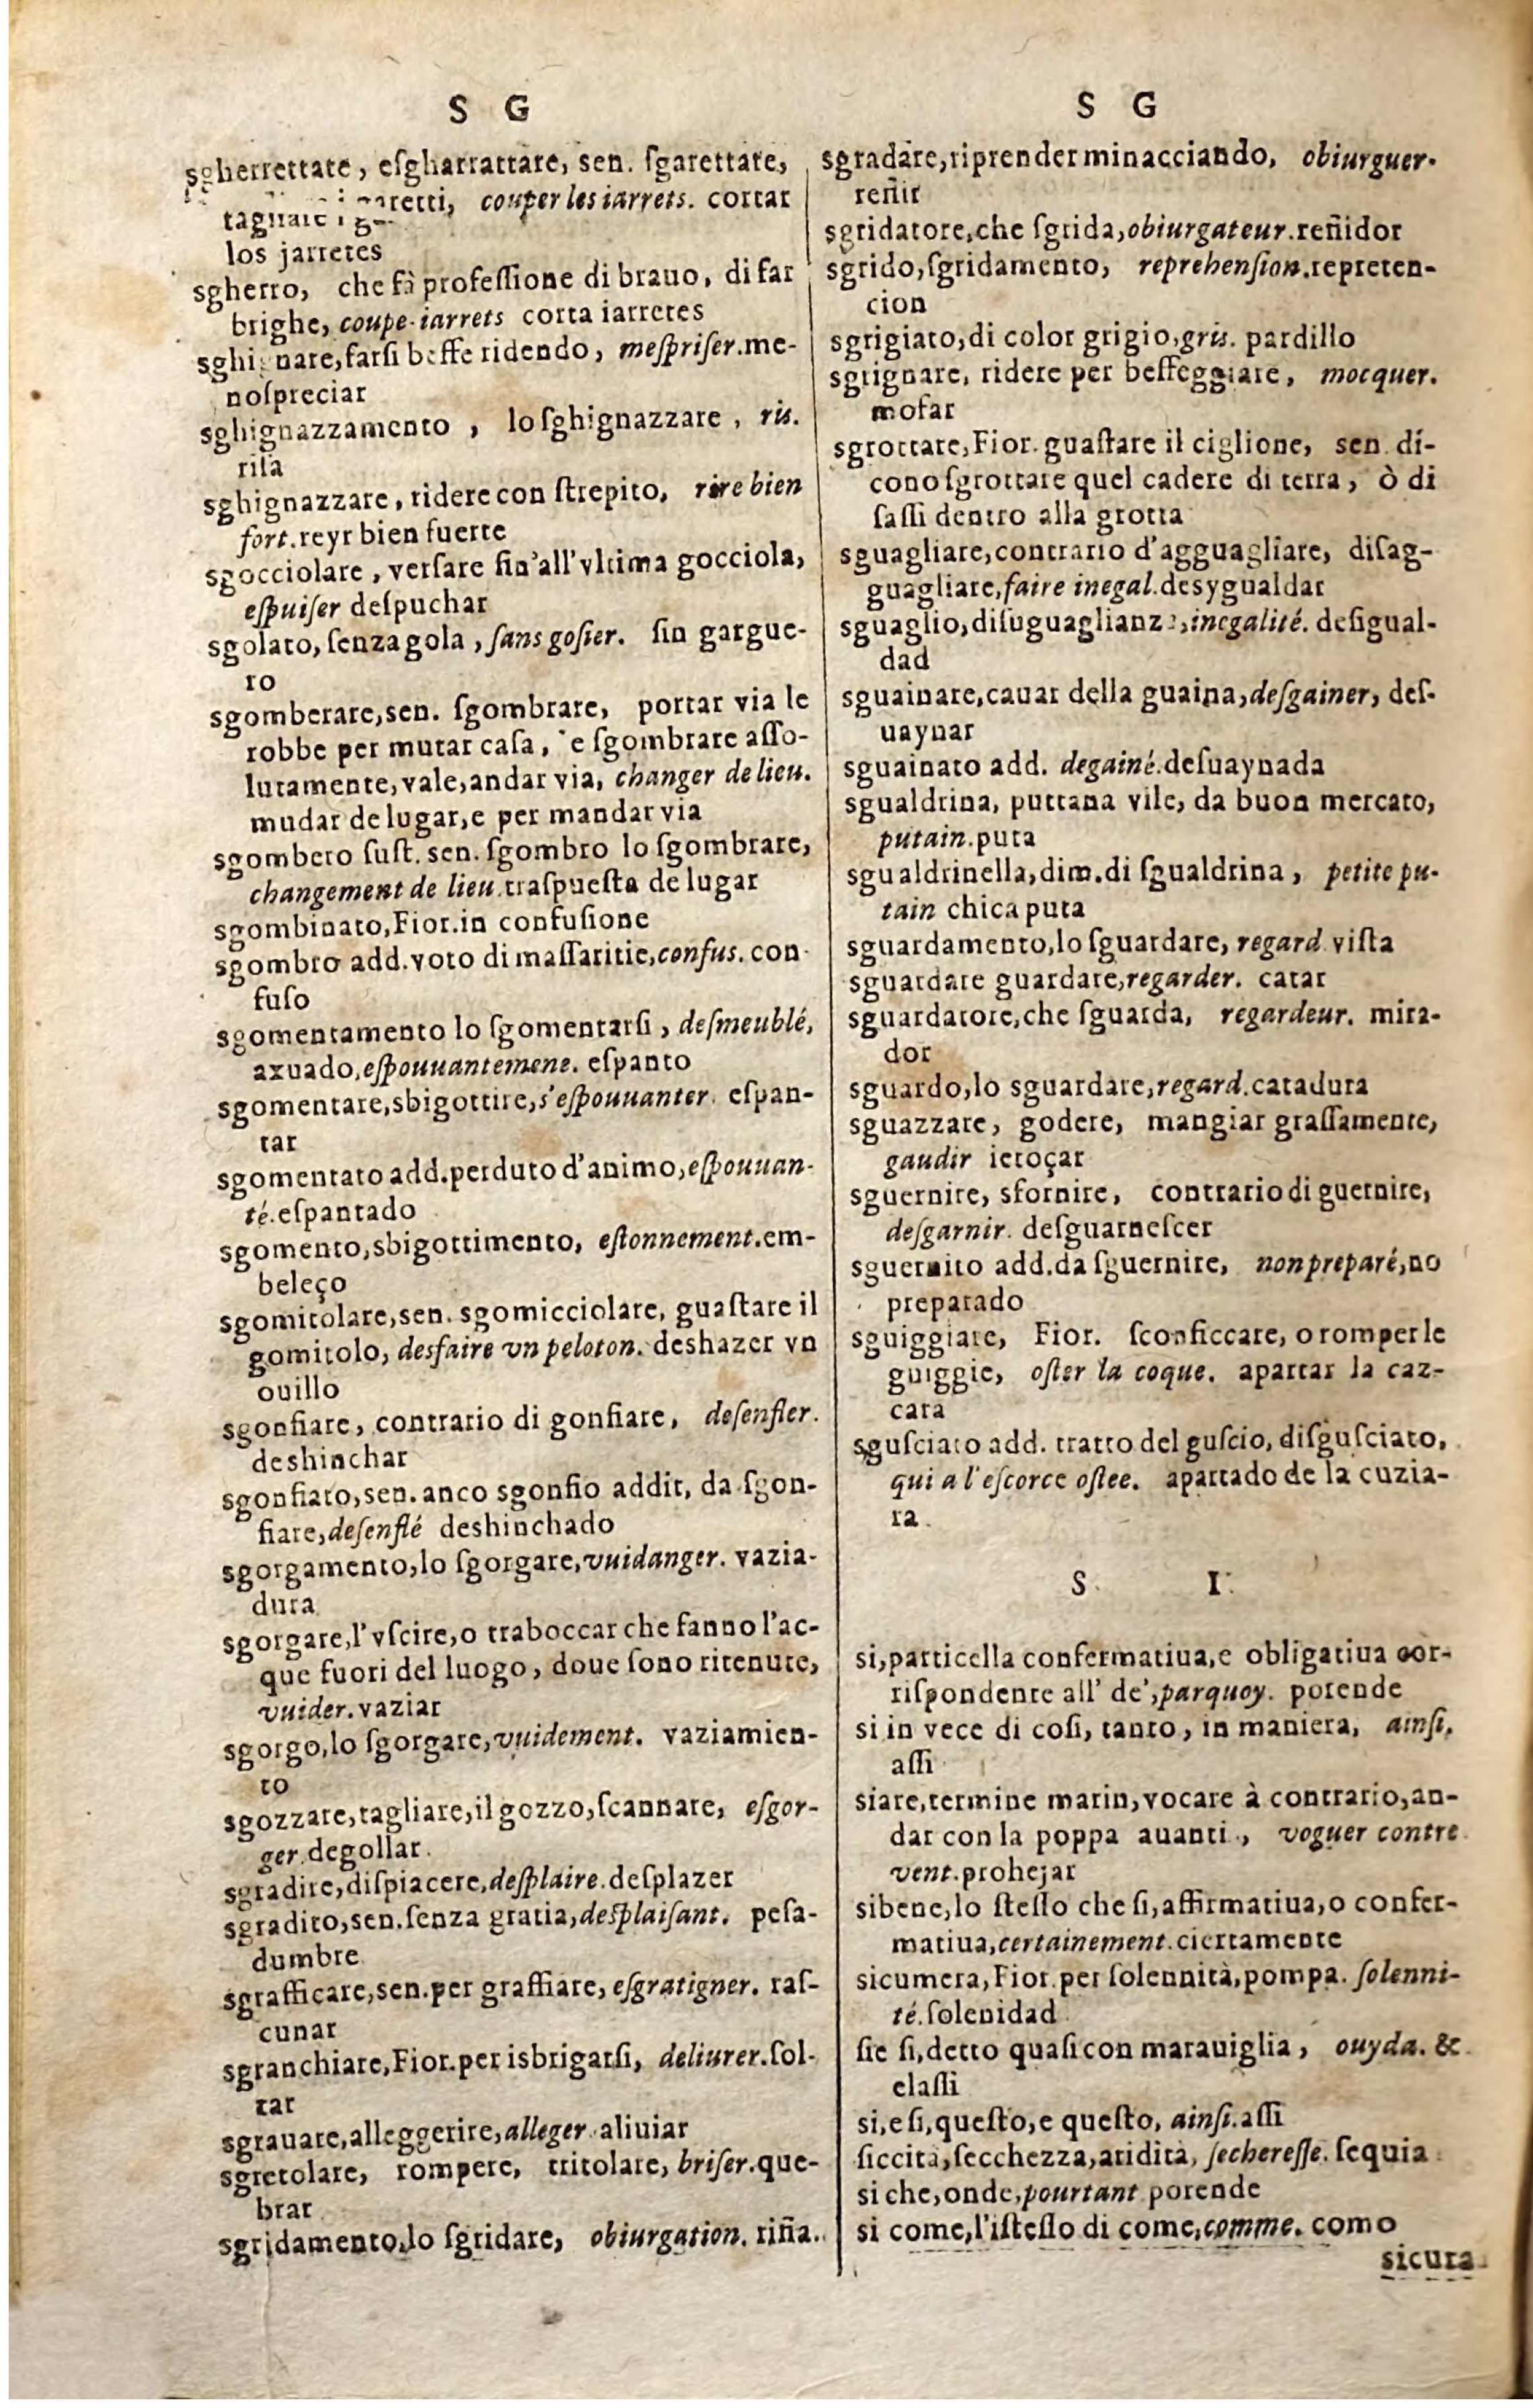 S G
sgherrettate, eſgharrattare, sen. ſgarettate,
tagliare i garetti, couper les iarrets. cortar
los jarretes
sgherro, che fà profeſſione di brauo, di far
brighe, coupe-iarrets corta iarretes
sghignare, farſi beffe ridendo, meſpriſer. me-
noſpreciar
sghignazzamento, lo ſghignazzare, ris.
riſa
sghignazzare, ridere con ſtrepito, rire bien
fort. reyr bien fuerte
sgocciolare, verſare fin'all'vltima gocciola,
eſpuiſer deſpuchar
sgolato, ſenza gola, ſans goſier. ſin gargue-
ro
sgomberare, sen. ſgombrare, portar via le
robbe per mutar caſa, e ſgombrare aſſo-
lutamente, vale, andar via, changer de lieu.
mudar de lugar, e per mandar via
sgombero ſuſt. sen. ſgombro lo ſgombrare,
changement de lieu. traſpueſta de lugar
sgombinato, Fior. in confuſione
sgombro add. voto di maſſaritie, confus. con-
fuſo
sgomentamento lo ſgomentarſi, deſmeublé,
axuado, eſpouuantemene. eſpanto
sgomentare, sbigottire, s'eſpouuanter. eſpan-
tar
sgomentato add. perduto d'animo, eſpouuan-
té. eſpantado
sgomento, sbigottimento, eſtonnement. em-
beleço
sgomitolare, sen. sgomicciolare, guaſtare il
gomitolo, desfaire vn peloton. deshazer vn
ouillo
sgonfiare, contrario di gonfiare, deſenfler.
deshinchar
sgonfiato, sen. anco sgonfio addit, da ſgon-
fiare, deſenflé deshinchado
sgorgamento, lo ſgorgare, vuidanger. vazia-
dura
sgorgare, l'vſcire, o traboccar che fanno l'ac-
que fuori del luogo, doue ſono ritenute,
vuider. vaziar
sgorgo, lo ſgorgare, vuidement. vaziamien-
to
sgozzare, tagliare, il gozzo, ſcannare, eſgor-
ger. degollar.
sgradire, diſpiacere, deſplaire. deſplazer
sgradito, sen. ſenza gratia, deſplaiſant. peſa-
dumbre
sgrafficare, sen. per graffiare, eſgratigner. raſ-
cunar
sgranchiare, Fior. per isbrigarſi, deliurer. ſol-
tar
sgrauare, alleggerire, alleger. aliuiar
sgretolare, rompere, tritolare, briſer. que-
brar
sgridamento, lo ſgridare, obiurgation. riña.
S G
sgradare, riprender minacciando, obiurguer.
reñir
sgridatore, che ſgrida, obiurgateur. reñidor
sgrido, ſgridamento, reprehenſion. repreten-
cion
sgrigiato, di color grigio, gris. pardillo
sgrignare, ridere per beffeggiare, mocquer.
mofar
sgrottare, Fior. guaſtare il ciglione, sen. di-
cono ſgrottare quel cadere di terra, ò di
ſaſſi dentro alla grotta
sguagliare, contrario d'agguagliare, diſag-
guagliare, faire inegal. desygualdar
sguaglio, diſuguaglianza, inegalité. deſigual-
dad
sguainare, cauar della guaina, deſgainer, deſ-
uaynar
sguainato add. degainé. deſuaynada
sgualdrina, puttana vile, da buon mercato,
putain. puta
sgualdrinella, dim. di ſgualdrina, petite pu-
tain chica puta
sguardamento, lo ſguardare, regard. viſta
sguardare guardare, regarder. catar
sguardatore, che ſguarda, regardeur. mira-
dor
sguardo, lo sguardare, regard. catadura
sguazzare, godere, mangiar graſſamente,
gaudir ietoçar
sguernire, sfornire, contrario di guernire,
deſgarnir. deſguarneſcer
sguernito add. da ſguernire, non preparé, no
preparado
sguiggiare, Fior. ſconficcare, o romper le
guiggie, oſter la coque. apartar la caz-
cara
sguſciato add. tratto del guſcio, diſguſciato,
qui a l'eſcorce oſtee. apartado de la cuzia-
ra.
S I
si, particella confermatiua, e obligatiua cor-
riſpondente all' de', parquoy. porende
si in vece di coſi, tanto, in maniera, ainſi.
aſſi
siare, termine marin, vocare à contrario, an-
dar con la poppa auanti, voguer contre
vent. prohejar
sibene, lo ſteſſo che ſi, affirmatiua, o confer-
matiua, certainement. ciertamente
sicumera, Fior. per ſolennità, pompa. ſolenni-
té. ſolenidad
ſie ſi, detto quaſi con marauiglia, ouyda. &
elaſſi
si, e ſi, queſto, e queſto, ainſi. aſſi
ſiccità, ſecchezza, aridità, ſechereſſe. ſequia
si che, onde, pourtant porende
si come, l'iſteſſo di come, comme. como
sicura-